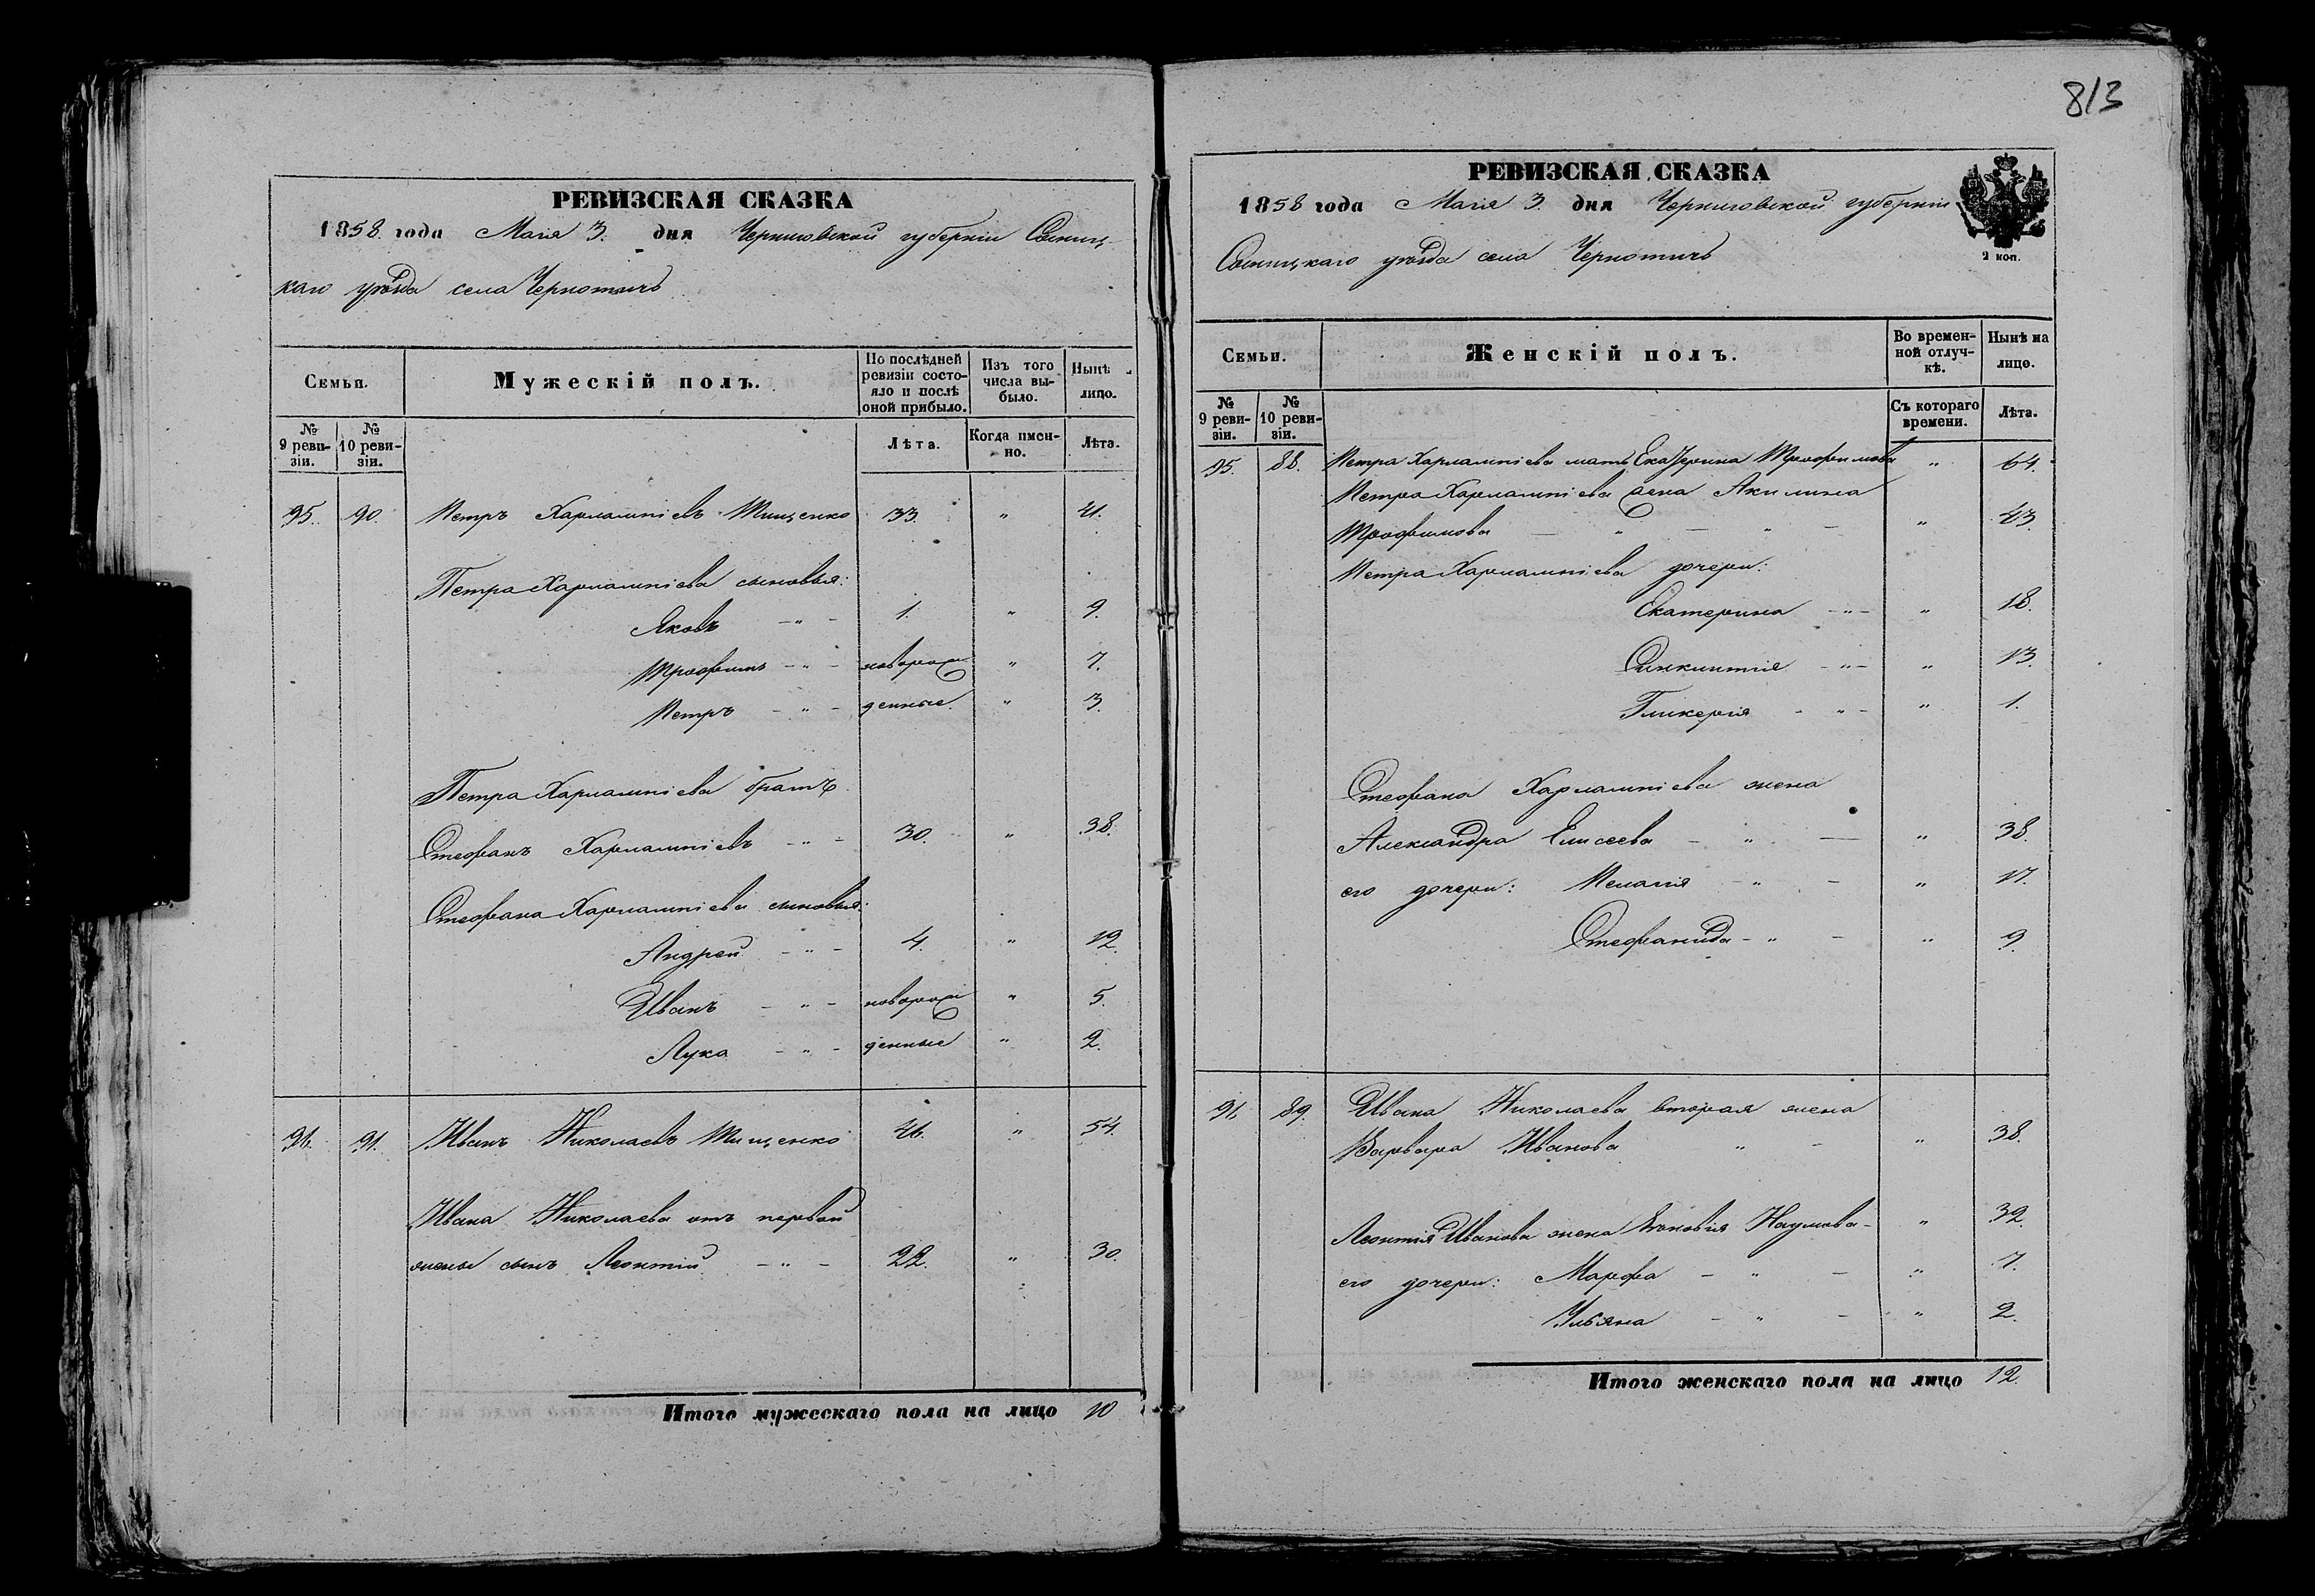 813
РЕВИЗСКАЯ СКАЗКА
1858 года Маія 3. дня Черниговской губерніи Сосниц-
каго уѣзда села Чернотичъ
Семьи.
Мужескій полъ.
По послѣдней ревизіи состояло и послѣ оной прибыло.
Изъ того числа выбыло.
Нынѣ лицо.
№ 9 ревизіи.
№ 10 ревизіи.
Лѣта.
Когда именно.
Лѣта.
95. 90. Петръ Харлампіевъ Тищенко 33. " 41.
Петра Харлампіева сыновья:
Яковъ - " - 1. " 9.
Трофимъ - " - новорож " 7.
Петръ - " - денные. " 3.
Петра Харлампіева братъ
Стефанъ Харлампіевъ - " - 30. " 38.
Стефана Харлампіева сыновья:
Андрей - " - 4. " 12.
Иванъ - " - новорож " 5.
Лука - " - денные " 2.
96. 91. Иванъ Николаевъ Тищенко 46. " 54.
Ивана Николаева отъ первой
жены сынъ Леонтій - " - 22. " 30.
Итого мужескаго пола на лицо 10
РЕВИЗСКАЯ СКАЗКА
1858 года Маія 3. дня Черниговской губерніи
Сосницкаго уѣзда села Чернотичъ
2 коп.
Семьи.
Женскій полъ.
Во временной отлучкѣ.
Нынѣ на лицо.
№ 9 ревизіи.
№ 10 ревизіи.
Съ котораго времени.
Лѣта.
95. 88. Петра Харлампіева мать Екатерина Трофимова " 64.
Петра Харлампіева жена Акилина
Трофимова — " — " — " 43.
Петра Харлампіева дочери:
Екатерина - " - " 18.
Синклитія - " - " 13.
Гликерія - " - " 1.
Стефана Харлампіева жена
Александра Елисеева - " — " 38.
его дочери: Меланія - " - " 17.
Стефанида - " - " 9.
96 89. Ивана Николаева вторая жена
Варвара Иванова " - " 38.
Леонтія Иванова жена Наумова - " 32.
его дочери: Марфа - " - " 7.
Ульяна - " - " 2.
Итого женскаго пола на лицо 12.